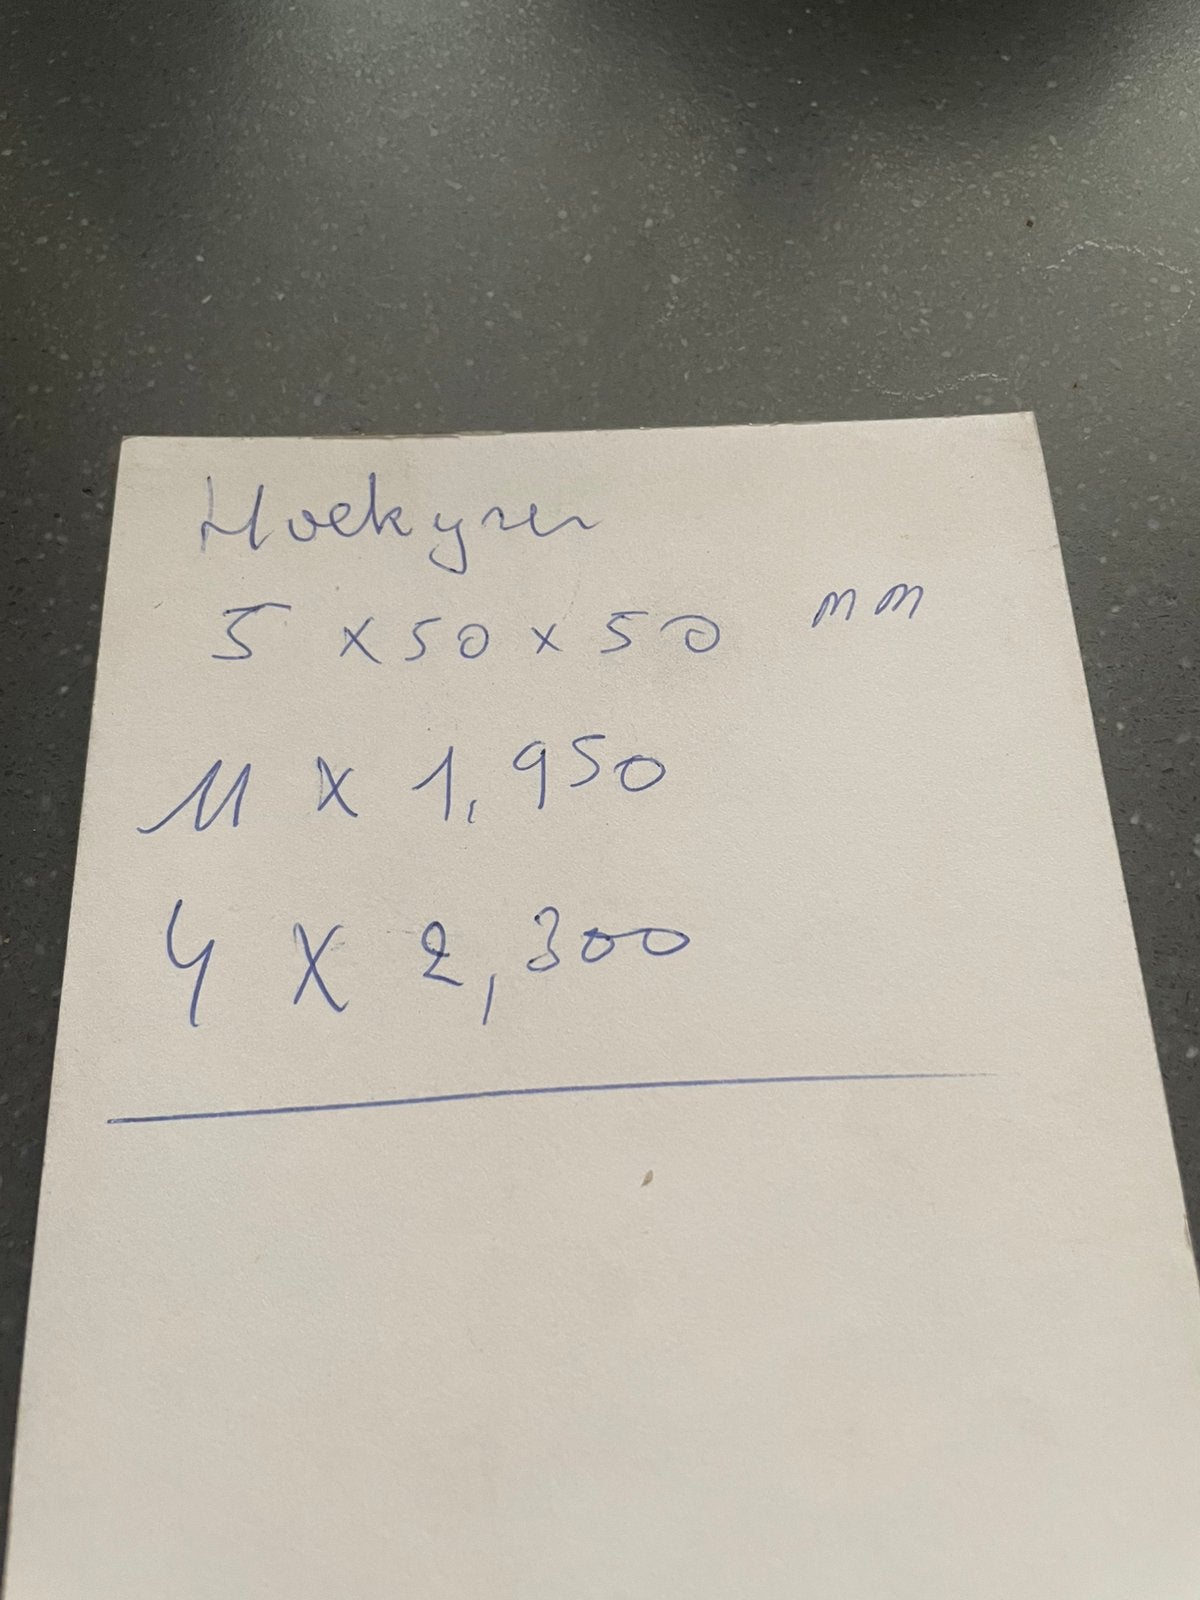 Hoekyzer
5 x 50 x 50 mm
11 x 1,950
4 x 2,300